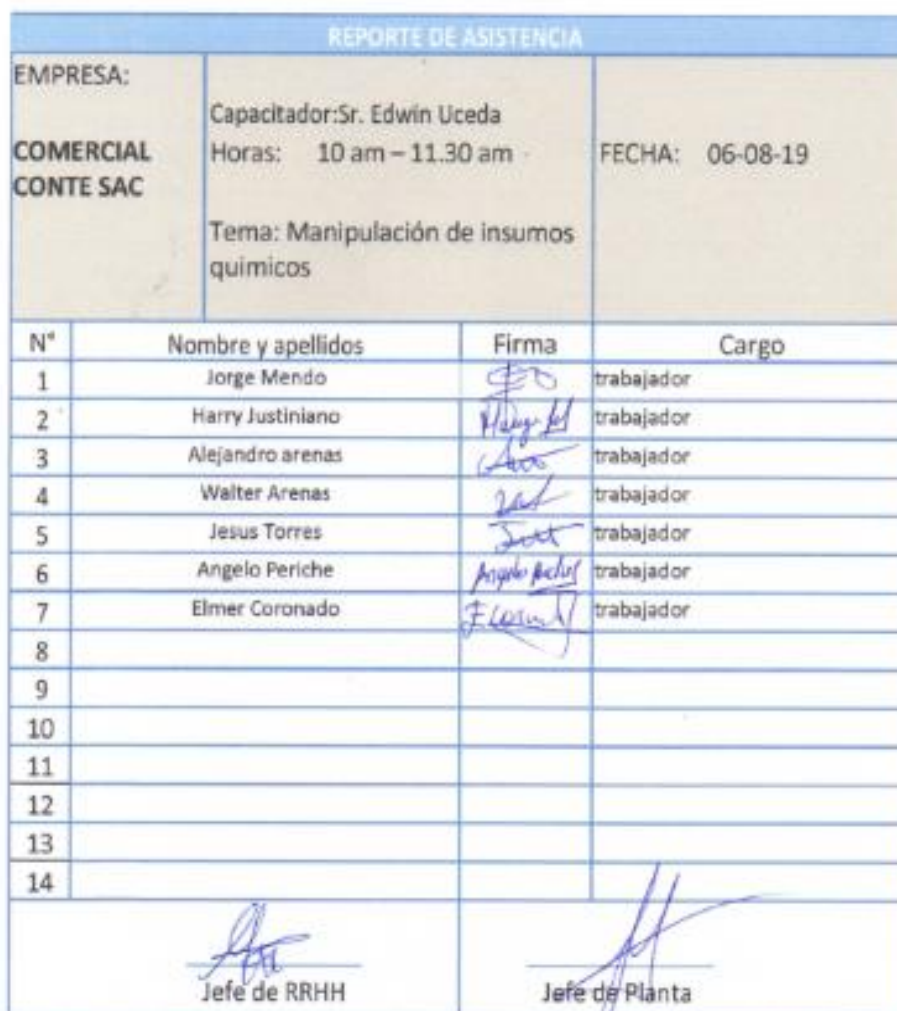 REPORTE DE ASISTENCIA
EMPRESA:
COMERCIAL
CONTE SAC
Capacitador:Sr. Edwin Uceda
Horas: 10 am – 11.30 am
Tema: Manipulación de insumos
quimicos
FECHA: 06-08-19
N° Nombre y apellidos Firma Cargo
1 Jorge Mendo trabajador
2 Harry Justiniano trabajador
3 Alejandro arenas trabajador
4 Walter Arenas trabajador
5 Jesus Torres trabajador
6 Angelo Periche Angelo trabajador
7 Elmer Coronado trabajador
8
9
10
11
12
13
14
Jefe de RRHH Jefe de Planta